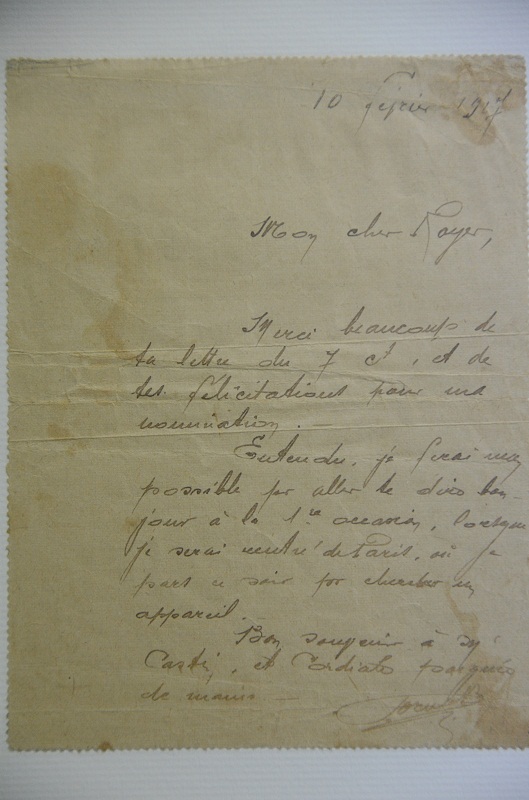 10 février 1917
Mon cher Royer,
Merci beaucoup de
ta lettre du 7 ct, et de
tes félicitations pour ma
nomination. —
Entendu, je ferai mon
possible pr aller te dire bon-
jour à la 1re occasion, lorsque
je serai rentré de Paris, où je
pars ce soir pr chercher un
appareil.
Bon souvenir à
et cordiales poignées
de mains —